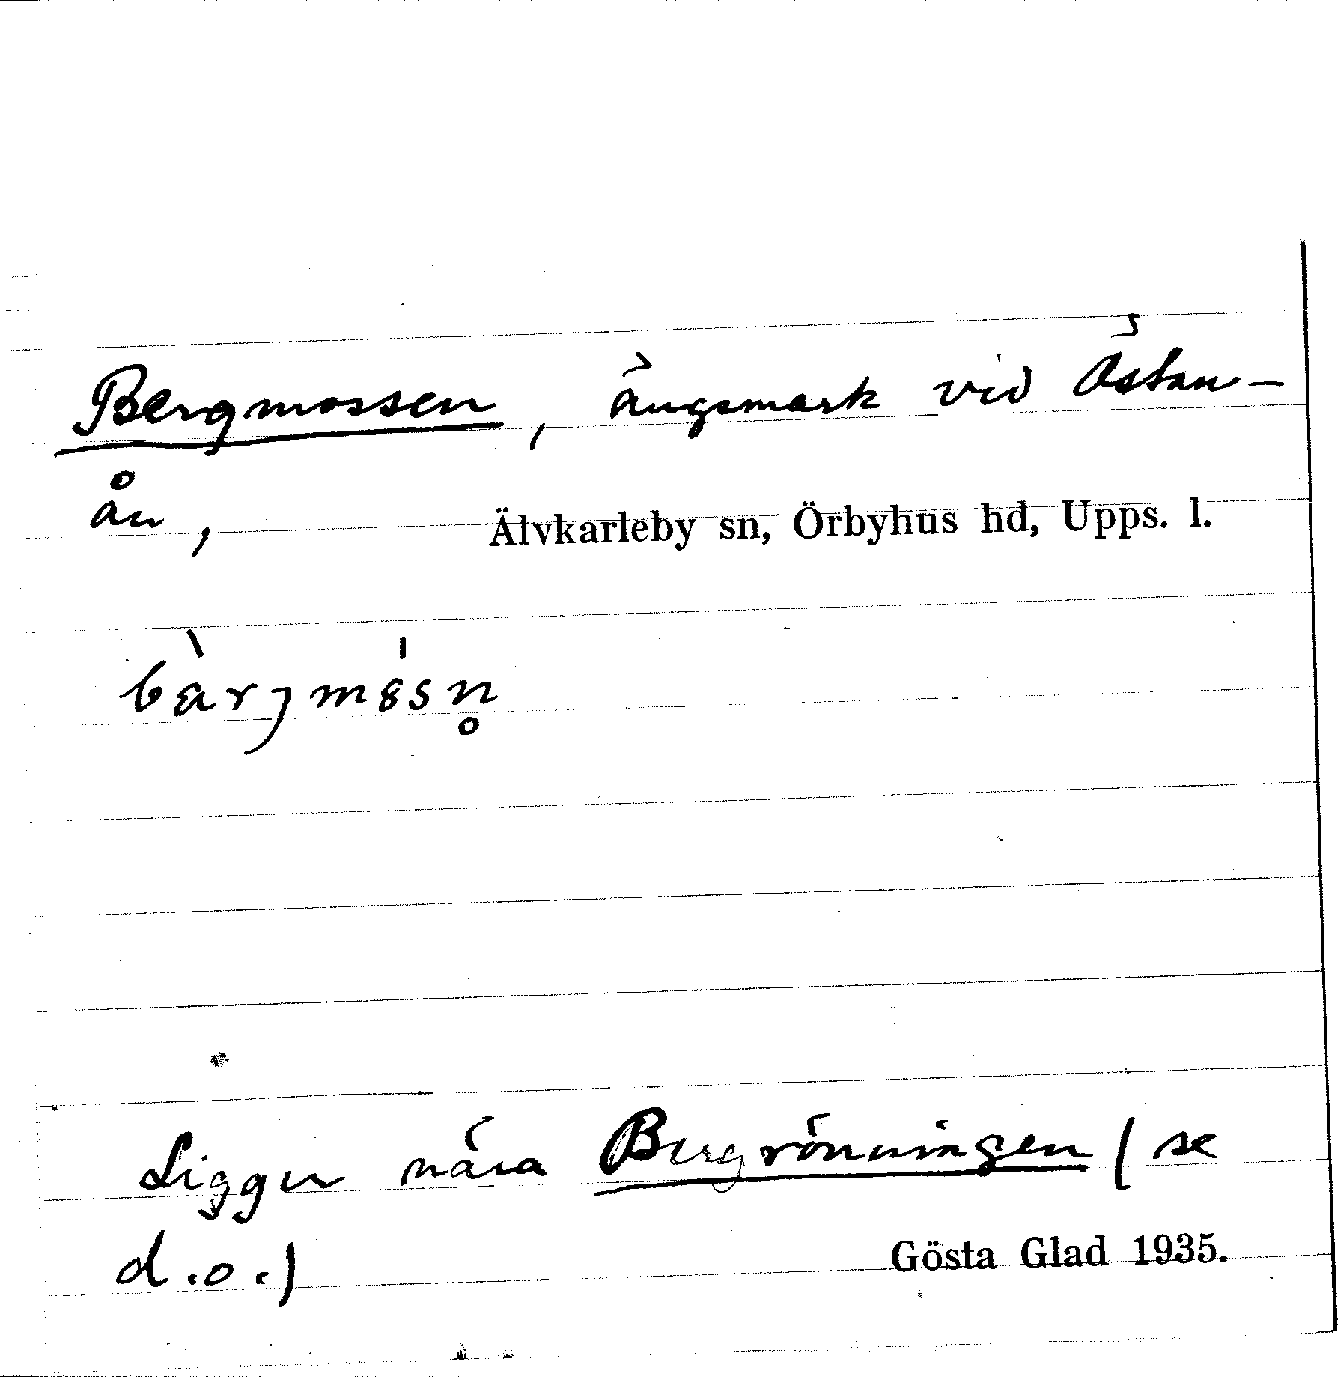 Bergmossen, ängsmark vid Östan-
ån, Älvkarleby sn, Örbyhus hd, Upps. l.
bàrjmósn̥
Ligger nära Bergrönningen (se
d.o.)
Gösta Glad 1935.